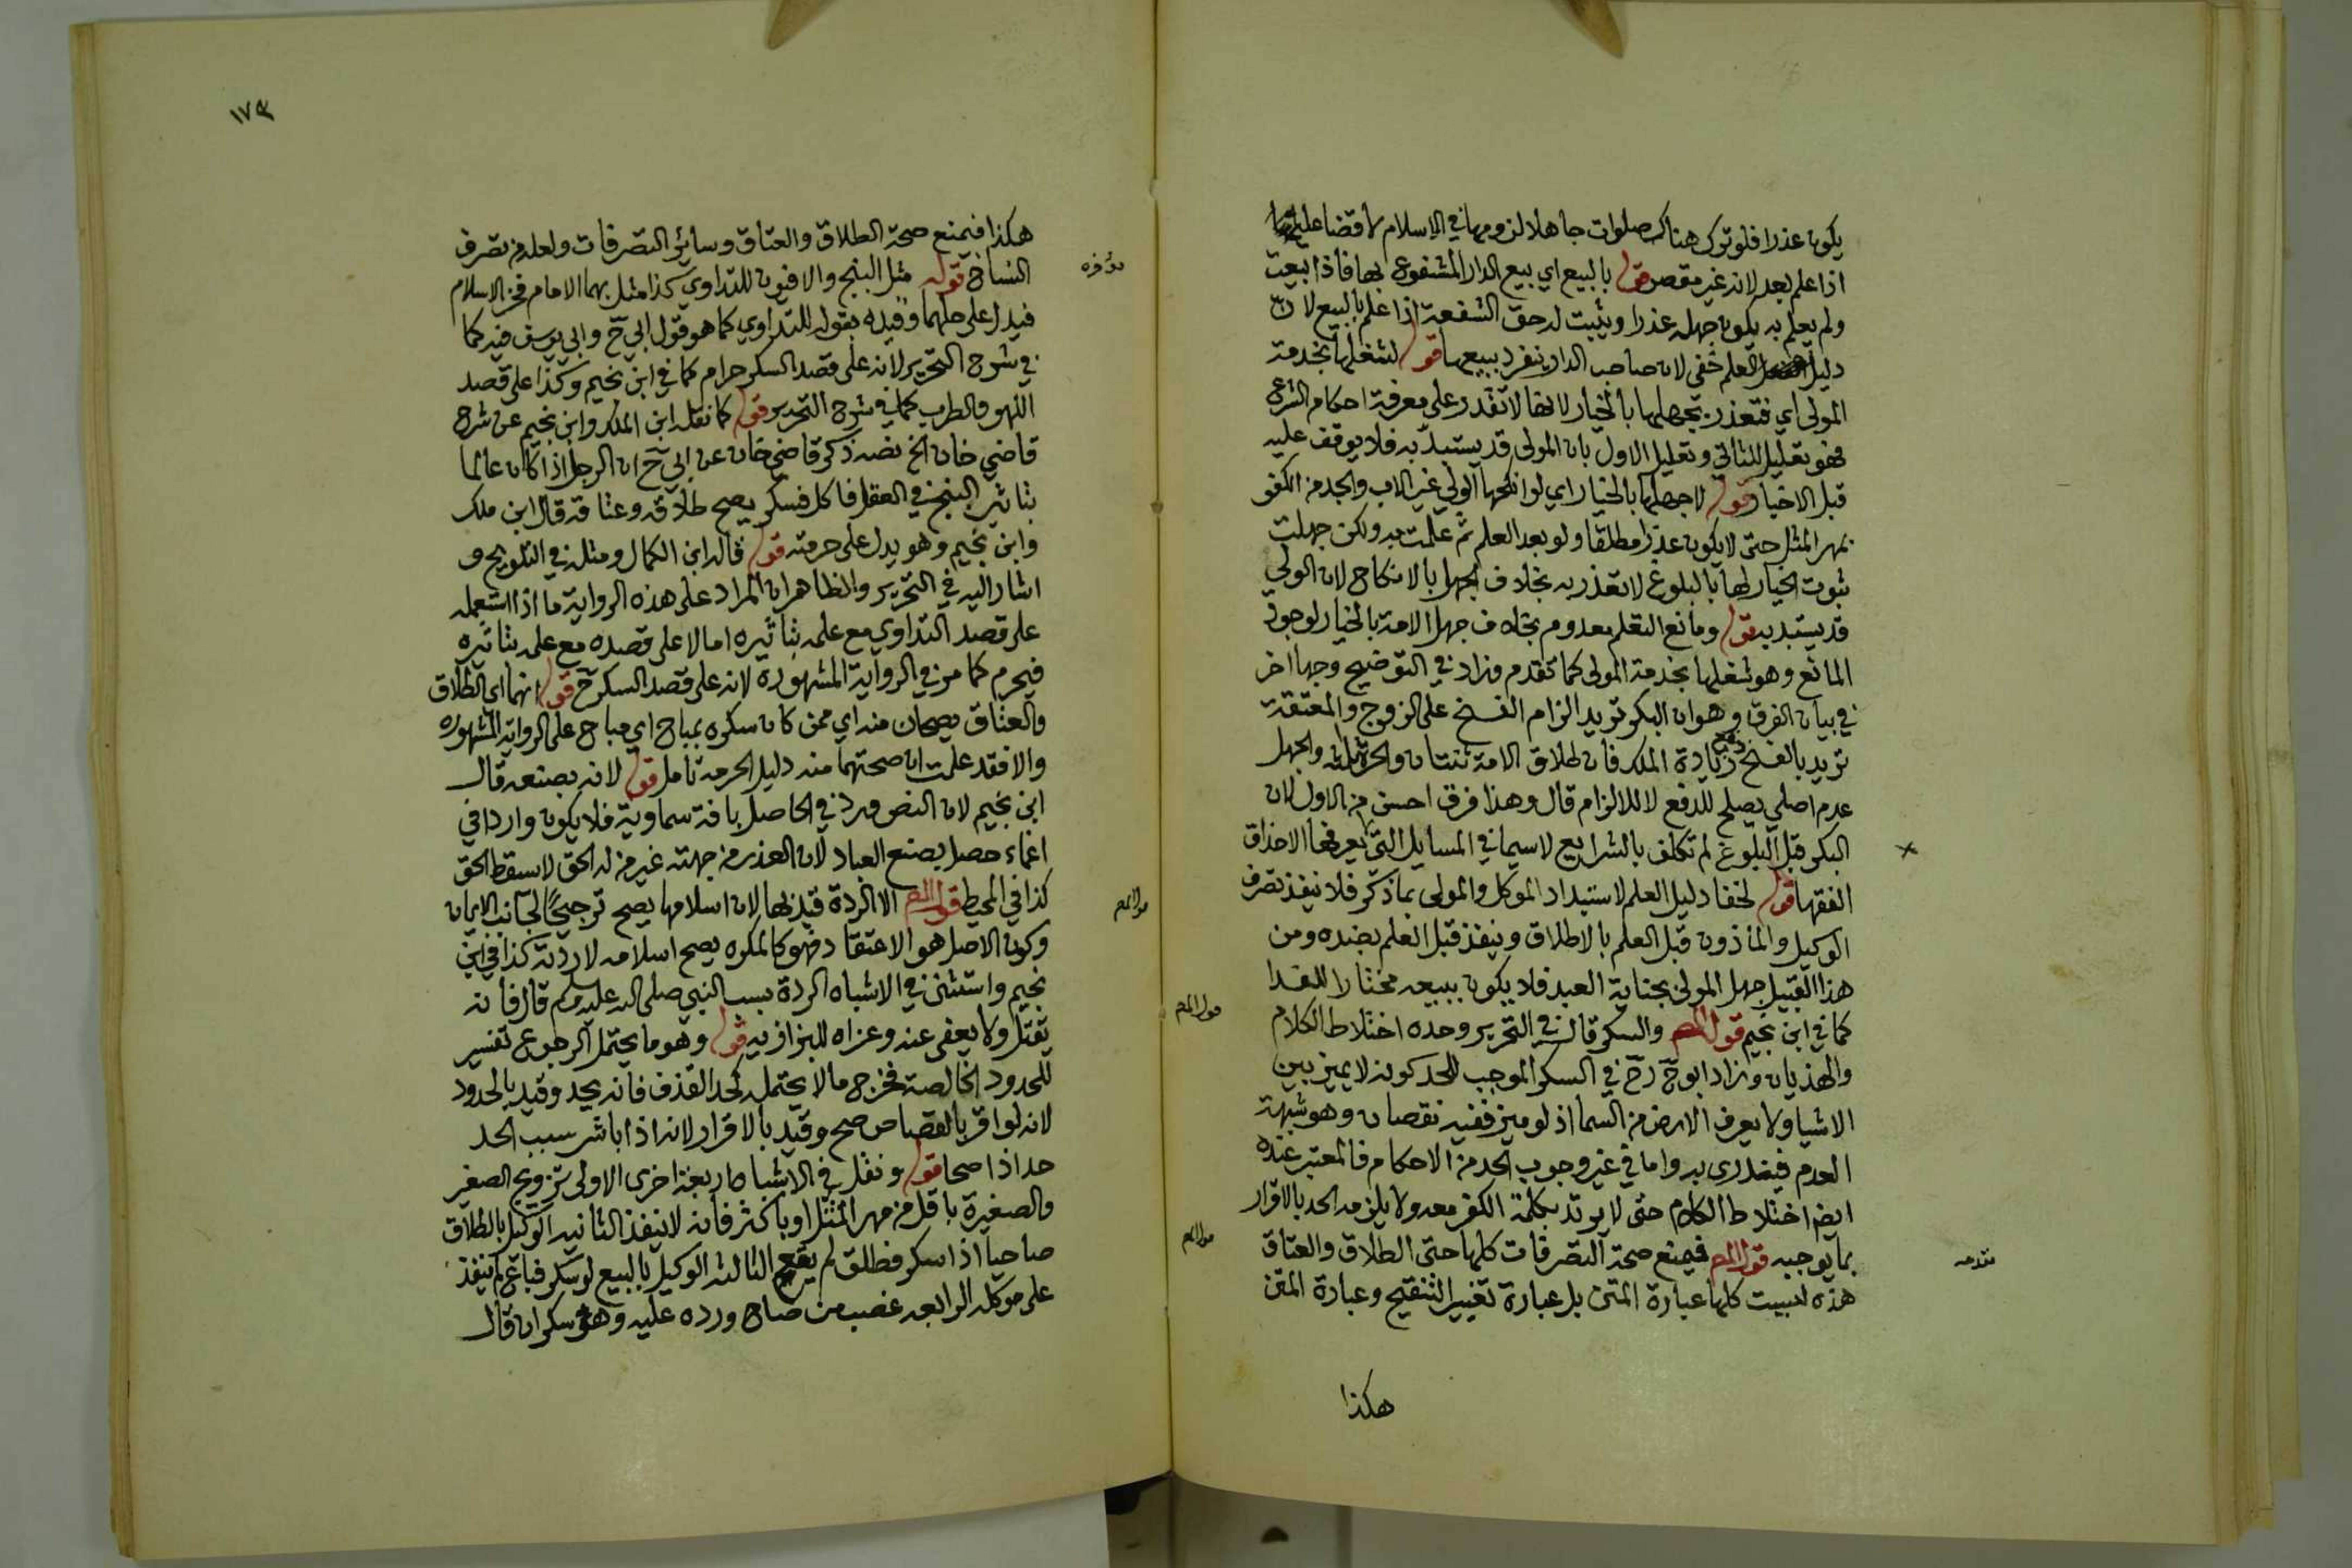 يكون عذرا فلو ترك هناك صلوات جاهلا لزومها في الاسلام لا قضا عليه
اذا علم بعد لانه غير مقصر قوله بالبيع اي بيع الدار المشفوع بها فاذا بيعت
ولم يعلم به يكون جهله عذرا ويثبت له حق الشفعة اذا علم بالبيع لان
دليل العلم خفي لان صاحب الدار ينفرد ببيعها قوله لشغلها بخدمة
المولى اي فتعذر بجهلها بالخيار لانها لا تقدر على معرفة احكام الشرع
فهو تعليل للثاني وتعليل الاول بان المولى قد يستبد به فلا يوقف عليه
قبل الاخبار قوله لا جهلها بالخيار اي لو انكحها الولي غير الاب والجد من الكفو
بمهر المثل حتى لا يكون عذرا مطلقا ولو بعد العلم ثم علمت به ولكن جهلت
ثبوت الخيار لها بالبلوغ لا تعذر به بخلاف الجهل بالانكاح لان الولي
قد يستبد به قوله ومانع التعلم معدوم بخلاف جهل الامة بالخيار لوجود
المانع وهو شغلها بخدمة المولى كما تقدم وزاد في التوضيح وجها اخر
في بيان الفرق وهو ان البكر تريد الزام الفسخ على الزوج والمعتقة
تريد بالفسخ دفع زيادة الملك فان طلاق الامة ثنتان والحرة ثلاثة والجهل
عدم اصلي يصلح للدفع لا للالزام قال وهذا فرق احسن من الاول لان
البكر قبل البلوغ لم تكلف بالشرايع لاسيما في المسايل التي لا يعرفها الا حذاق
الفقها قوله لخفا دليل العلم لاستبداد الموكل والمولى بما ذكر فلا ينفذ تصرف
الوكيل والمأذون قبل العلم بالاطلاق وينفذ قبل العلم بضده ومن
هذا القبيل جهل المولى بجناية العبد فلا يكون ببيعه مختارا للفدا
كما في ابن نجيم قول المص والسكر قال في التحرير وحده اختلاط الكلام
والهذيان وزاد ابو ح رح في السكر الموجب للحد كونه لا يميز بين
الاشيا ولا يعرف الارض من السما اذ لو ميز ففيه نقصان وهو شبهة
العدم فيندرئ به واما في غير وجوب الحد من الاحكام فالمعتبر عنده
ايضا اختلاط الكلام حتى لا يرتد بكلمة الكفر معه ولا يلزمه الحد بالاقرار
بما يوجبه قول المص فيمنع صحة التصرفات كلها حتى الطلاق والعتاق
هذه ليست كلها عبارة المتن بل عبارة تغيير التنقيح وعبارة المتن
هكذا
١٧٣
هكذا فيمنع صحة الطلاق والعتاق وسائر التصرفات ولعله من تصرف
النساخ قوله مثل البنج والافيون للتداوي كذا مثل بهما الامام فخر الاسلام
فيدل على حلهما وقيده بقوله للتداوي كما هو قول ابي ح وابي يوسف فيه كما
في شرح التحرير لانه على قصد السكر حرام كما في ابن نجيم وكذا على قصد
اللهو والطرب كما في شرح التحرير قوله كما نقله ابن الملك وابن نجيم عن شرح
قاضي خان الخ نصه ذكر قاضي خان عن ابي ح ان الرجل اذا كان عالما
بتاثير البنج في العقل فاكل فسكر يصح طلاقه وعتاقه قال ابن ملك
وابن نجيم وهو يدل على حرمته قوله قاله ابن الكمال ومثله في التلويح و
اشار اليه في التحرير والظاهر ان المراد على هذه الرواية ما اذا استعمله
على قصد التداوي مع علمه بتاثيره اما لا على قصده مع علمه بتاثيره
فيحرم كما مر في الرواية المشهورة لانه على قصد السكر ح قوله انهما اي الطلاق
والعتاق يصحان منه اي ممن كان سكره بمباح اي مباح على الرواية المشهورة
والا فقد علمت ان صحتهما منه دليل الحرمة تامل قوله لانه بصنعه قال
ابن نجيم لان النص ورد في الحاصل بافة سماوية فلا يكون واردا في
اغماء حصل بصنع العباد لان العذر من جهته غير من له الحق لا يسقط الحق
كذا في المحيط قول المص الا الردة قيد بها لان اسلامها يصح ترجيحا لجانب الايمان
وكون الاصل هو الاعتقاد فهو كالمكره يصح اسلامه لا ردته كذا في ابن
نجيم واستثنى في الاشباه الردة بسب النبي صلى الله عليه وسلم قال فانه
يقتل ولا يعفى عنه وعزاه للبزازية قوله وهو ما يحتمل الرجوع تفسير
للحدود الخالصة فخرج ما لا يحتمله كحد القذف فانه يحد وقيد بالحدود
لانه لو اقر بالقصاص صح وقيد بالاقرار لانه اذا باشر سبب الحد
حد اذا صحا قوله ونقل في الاشباه اربعة اخرى الاولى تزويج الصغير
والصغيرة باقل من مهر المثل او باكثر فانه لا ينفذ الثانية الوكيل بالطلاق
صاحيا اذا سكر فطلق لم يقع الثالثة الوكيل بالبيع لو سكر فباع لم ينفذ
على موكله الرابعة غصب من صاح ورده عليه وهو سكران قال
قول المص
قول المص
قول المص